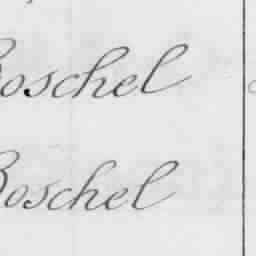 Boschel
Boschel